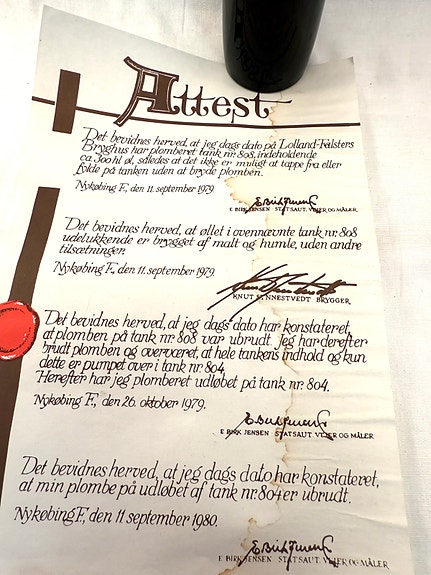 Attest
Det bevidnes herved, at jeg dags dato på Lolland-Falsters
Bryghus har plomberet tank nr. 808, indeholdende
ca. 300 hl øl, således at det ikke er muligt at tappe fra eller
fylde på tanken uden at bryde plomben.
Nykøbing F., den 11. september 1979.
E. BIRK JENSEN STATSAUT. VEJER OG MÅLER
Det bevidnes herved, at øllet i ovennævnte tank nr. 808
udelukkende er brygget af malt og humle, uden andre
tilsætninger.
Nykøbing F., den 11. september 1979.
KNUT SYNNESTVEDT BRYGGER
Det bevidnes herved, at jeg dags dato har konstateret,
at plomben på tank nr. 808 var ubrudt. Jeg har derefter
brudt plomben og overværet, at hele tankens indhold og kun
dette er pumpet over i tank nr. 804.
Herefter har jeg plomberet udløbet på tank nr. 804.
Nykøbing F., den 26. oktober 1979.
E. BIRK JENSEN STATSAUT. VEJER OG MÅLER
Det bevidnes herved, at jeg dags dato har konstateret,
at min plombe på udløbet af tank nr. 804 er ubrudt.
Nykøbing F., den 11 september 1980.
E. BIRK JENSEN STATSAUT. VEJER OG MÅLER